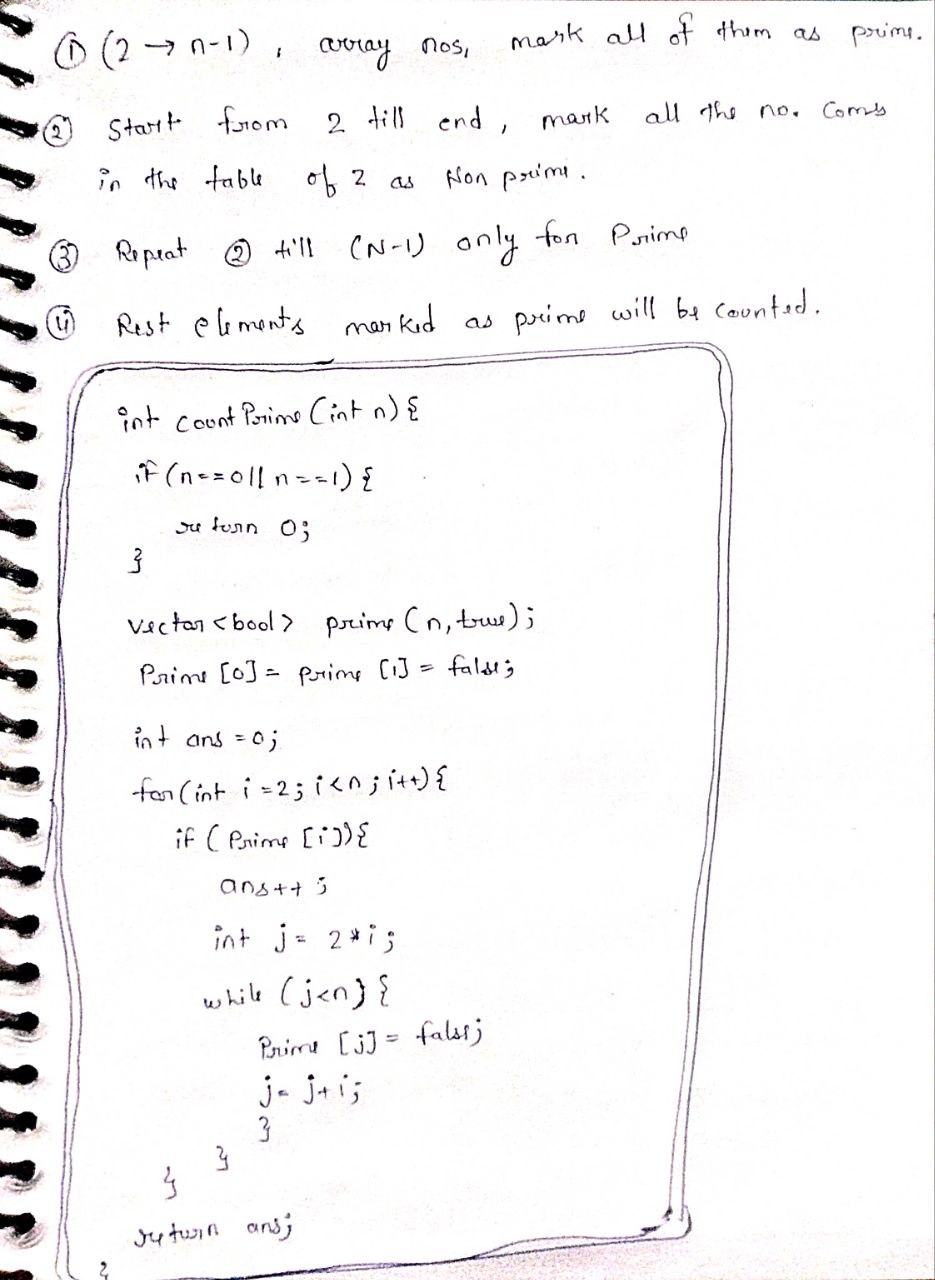 ① (2 → n-1) , array nos, mark all of them as prime.
② Start from 2 till end, mark all the no. Coms
in the table of 2 as Non prime.
③ Repeat ② till (N-1) only for Prime
④ Rest elements marked as prime will be counted.
int count Prime (int n) {
if (n==0 || n==1) {
return 0;
}
vector <bool> prime (n, true);
Prime [0] = prime [1] = false;
int ans = 0;
for (int i = 2; i < n; i++) {
if ( Prime [i]) {
ans++ ;
int j = 2*i;
while (j<n) {
Prime [j] = false;
j= j+i;
}
}
}
return ans;
}